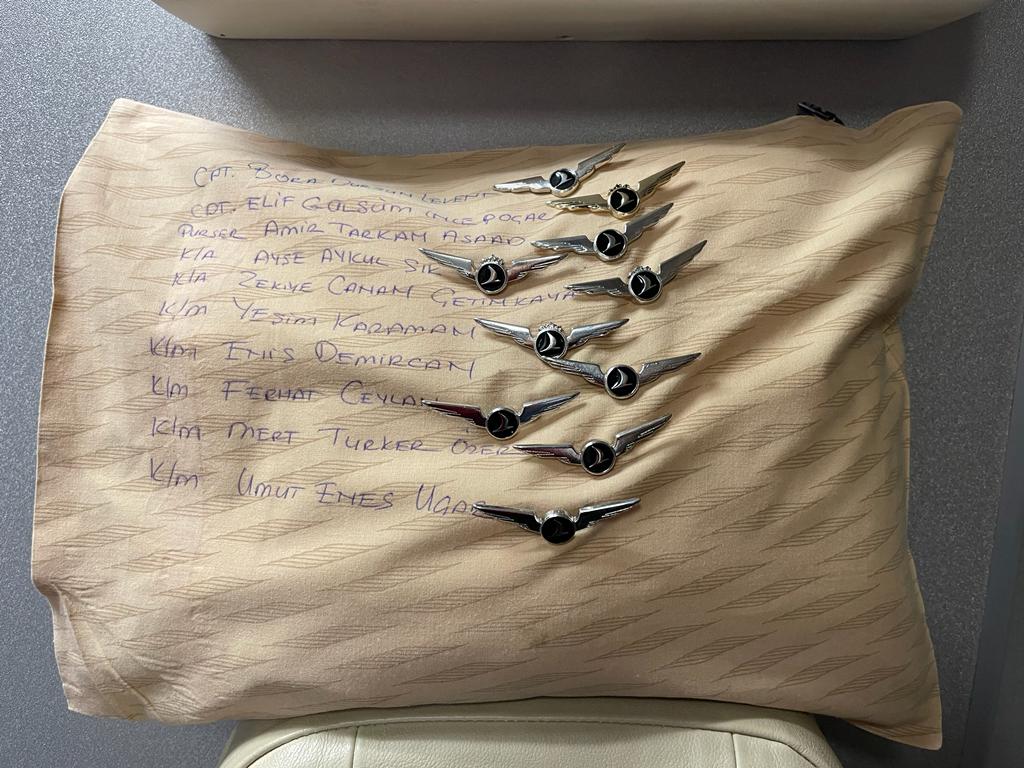 CPT. BORA DURSUN LEVENT
CPT. ELİF GÜLSÜM İNCE DOĞAR
PURSER AMIR TARKAM ASAAD
K/A AYSE AYKUL SIK
K/A ZEKIYE CANAM GETINKAYA
K/M YEŞİM KARAMAN
K/M ENIS DEMIRCAN
K/M FERHAT CEYLAN
K/M MERT TURKER OZER
K/M UMUT ENES UGAR